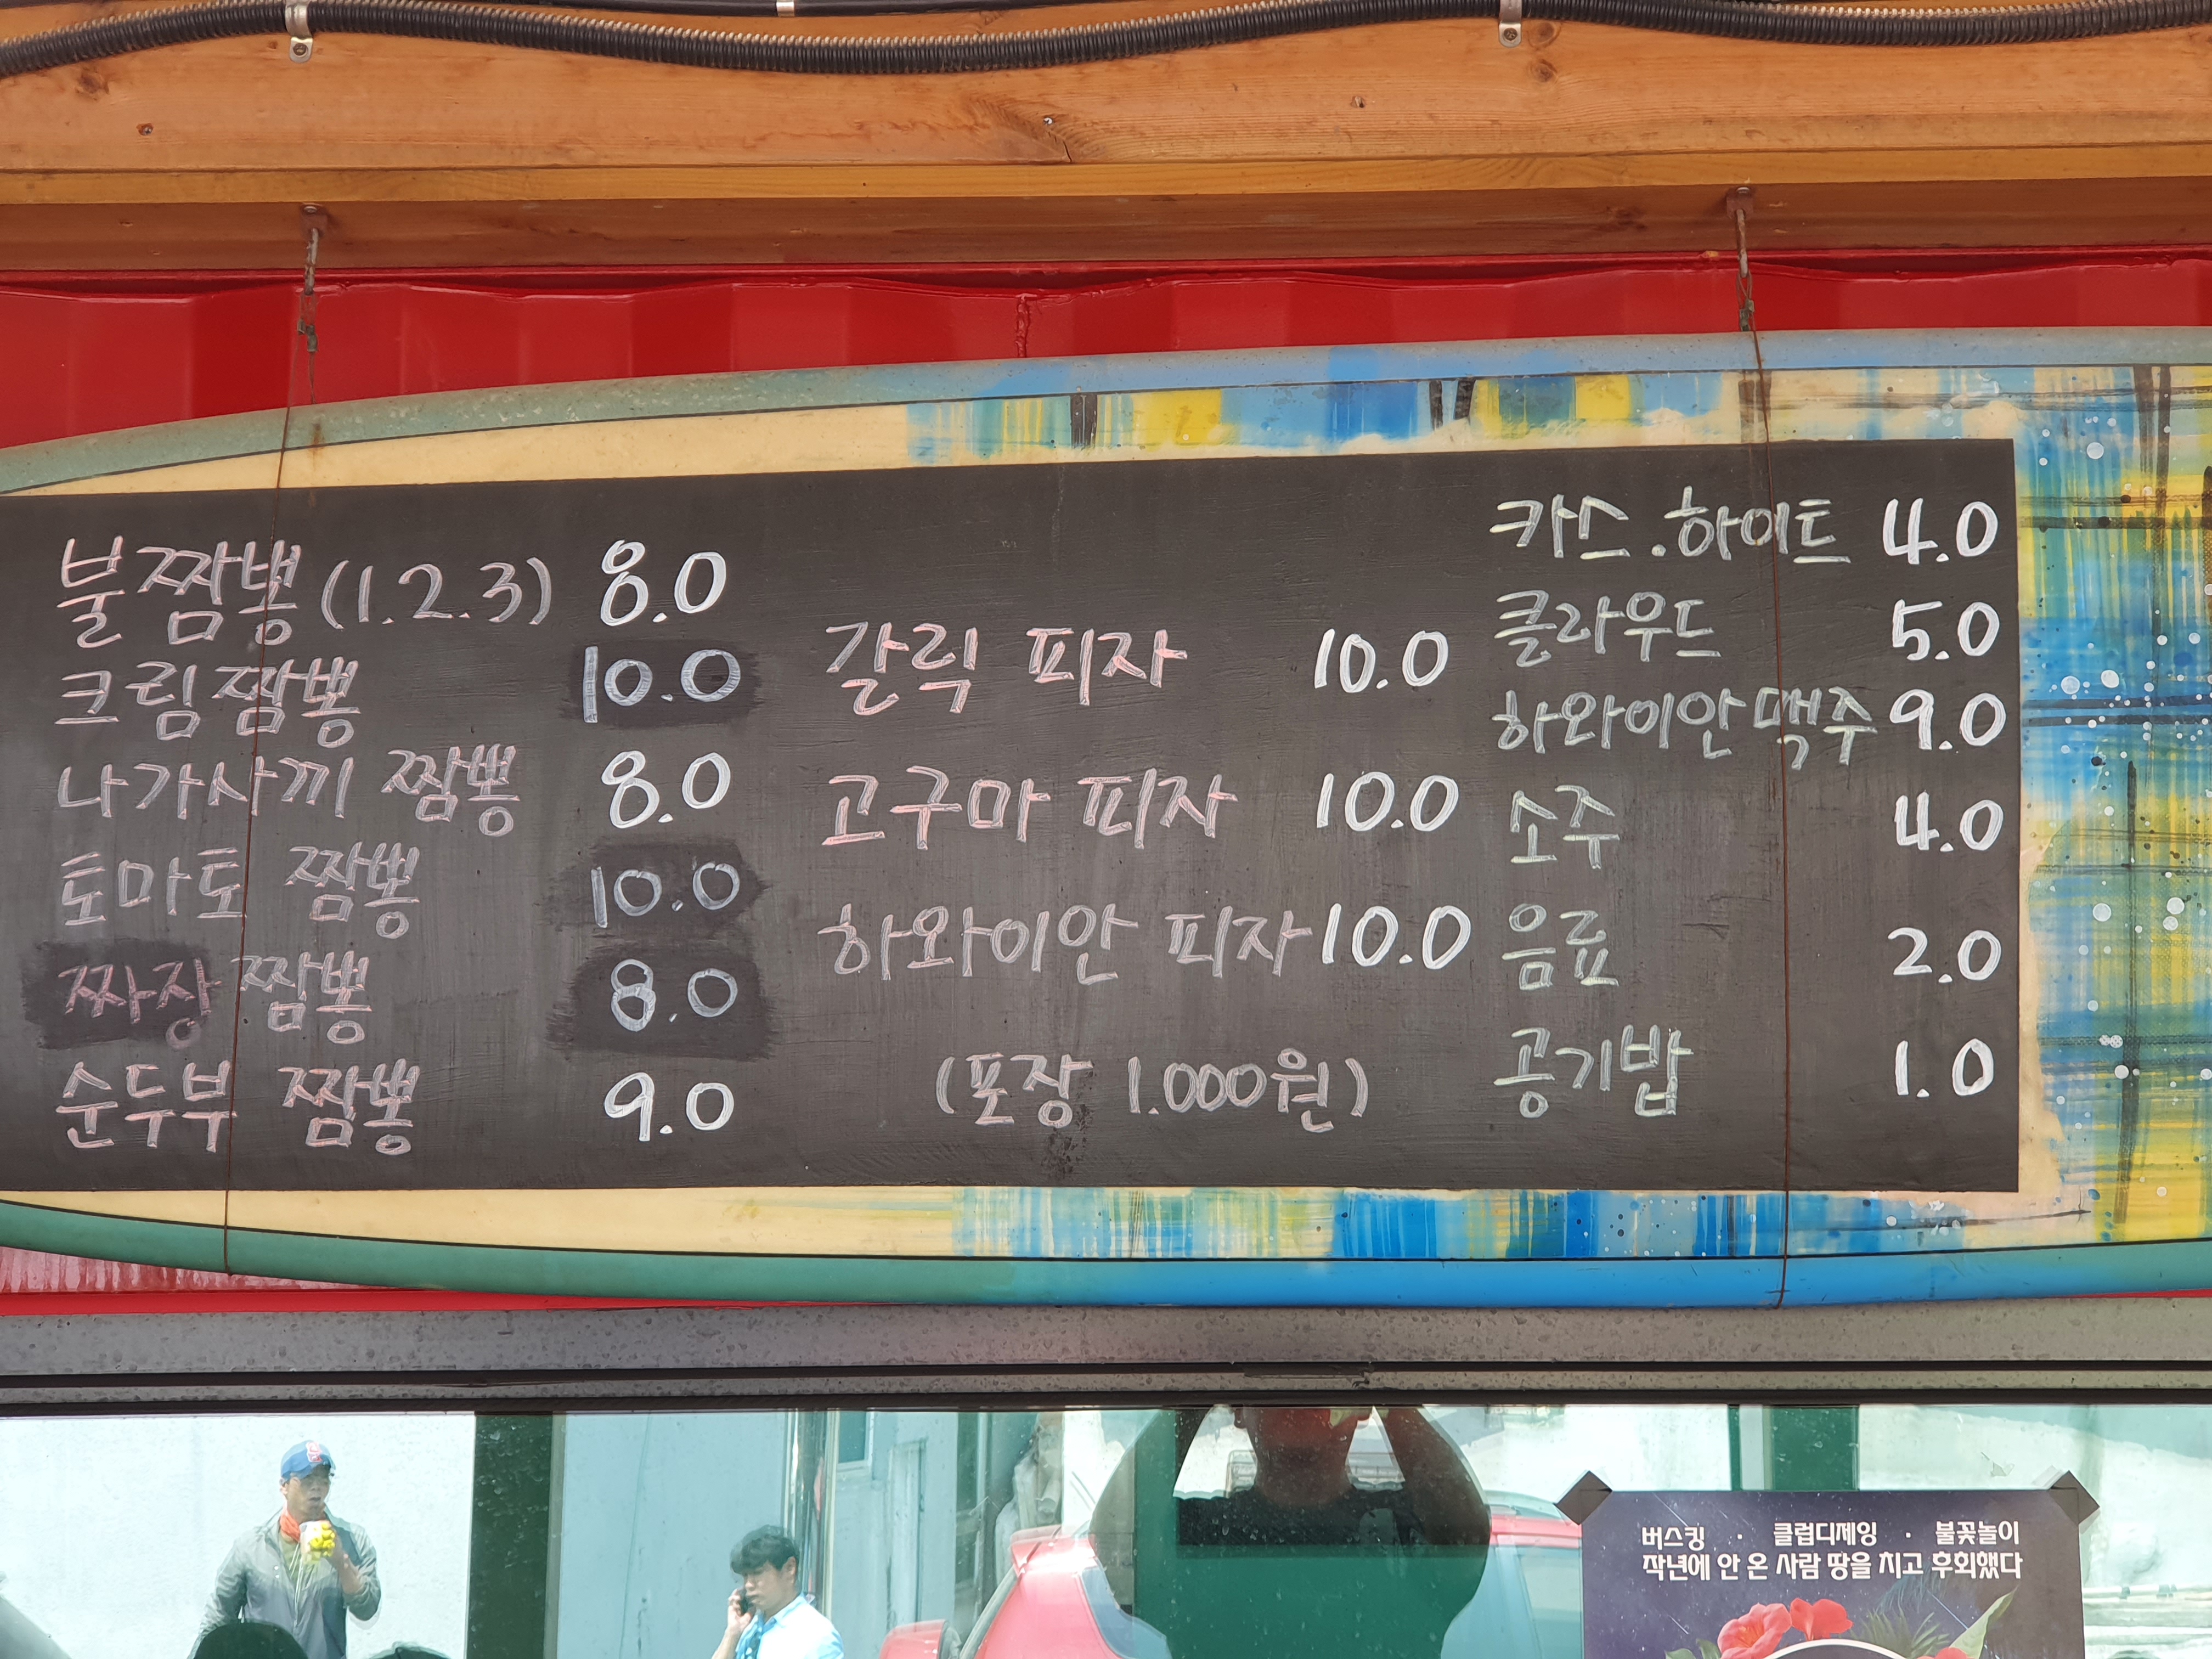 불짬뽕(1.2.3) 8.0
크림짬뽕 10.0
나가사끼 짬뽕 8.0
토마토 짬뽕 10.0
짜장짬뽕 8.0
순두부 짬뽕 9.0
갈릭 피자 10.0
고구마 피자 10.0
하와이안 피자 10.0
(포장 1.000원)
카스.하이트 4.0
클라우드 5.0
하와이안맥주 9.0
소주 4.0
음료 2.0
공기밥 1.0
버스킹 · 클럽디제잉 · 불꽃놀이
작년에 안 온 사람 땅을 치고 후회했다